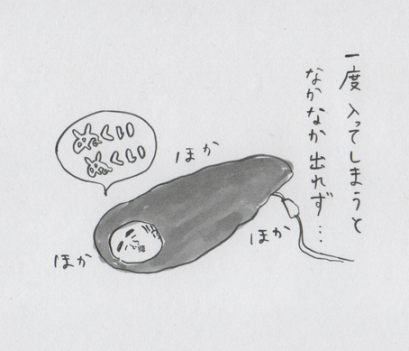 一度 入ってしまうと
なかなか 出れず…
ぬくい
ぬくい
ほか
ほか
ほか